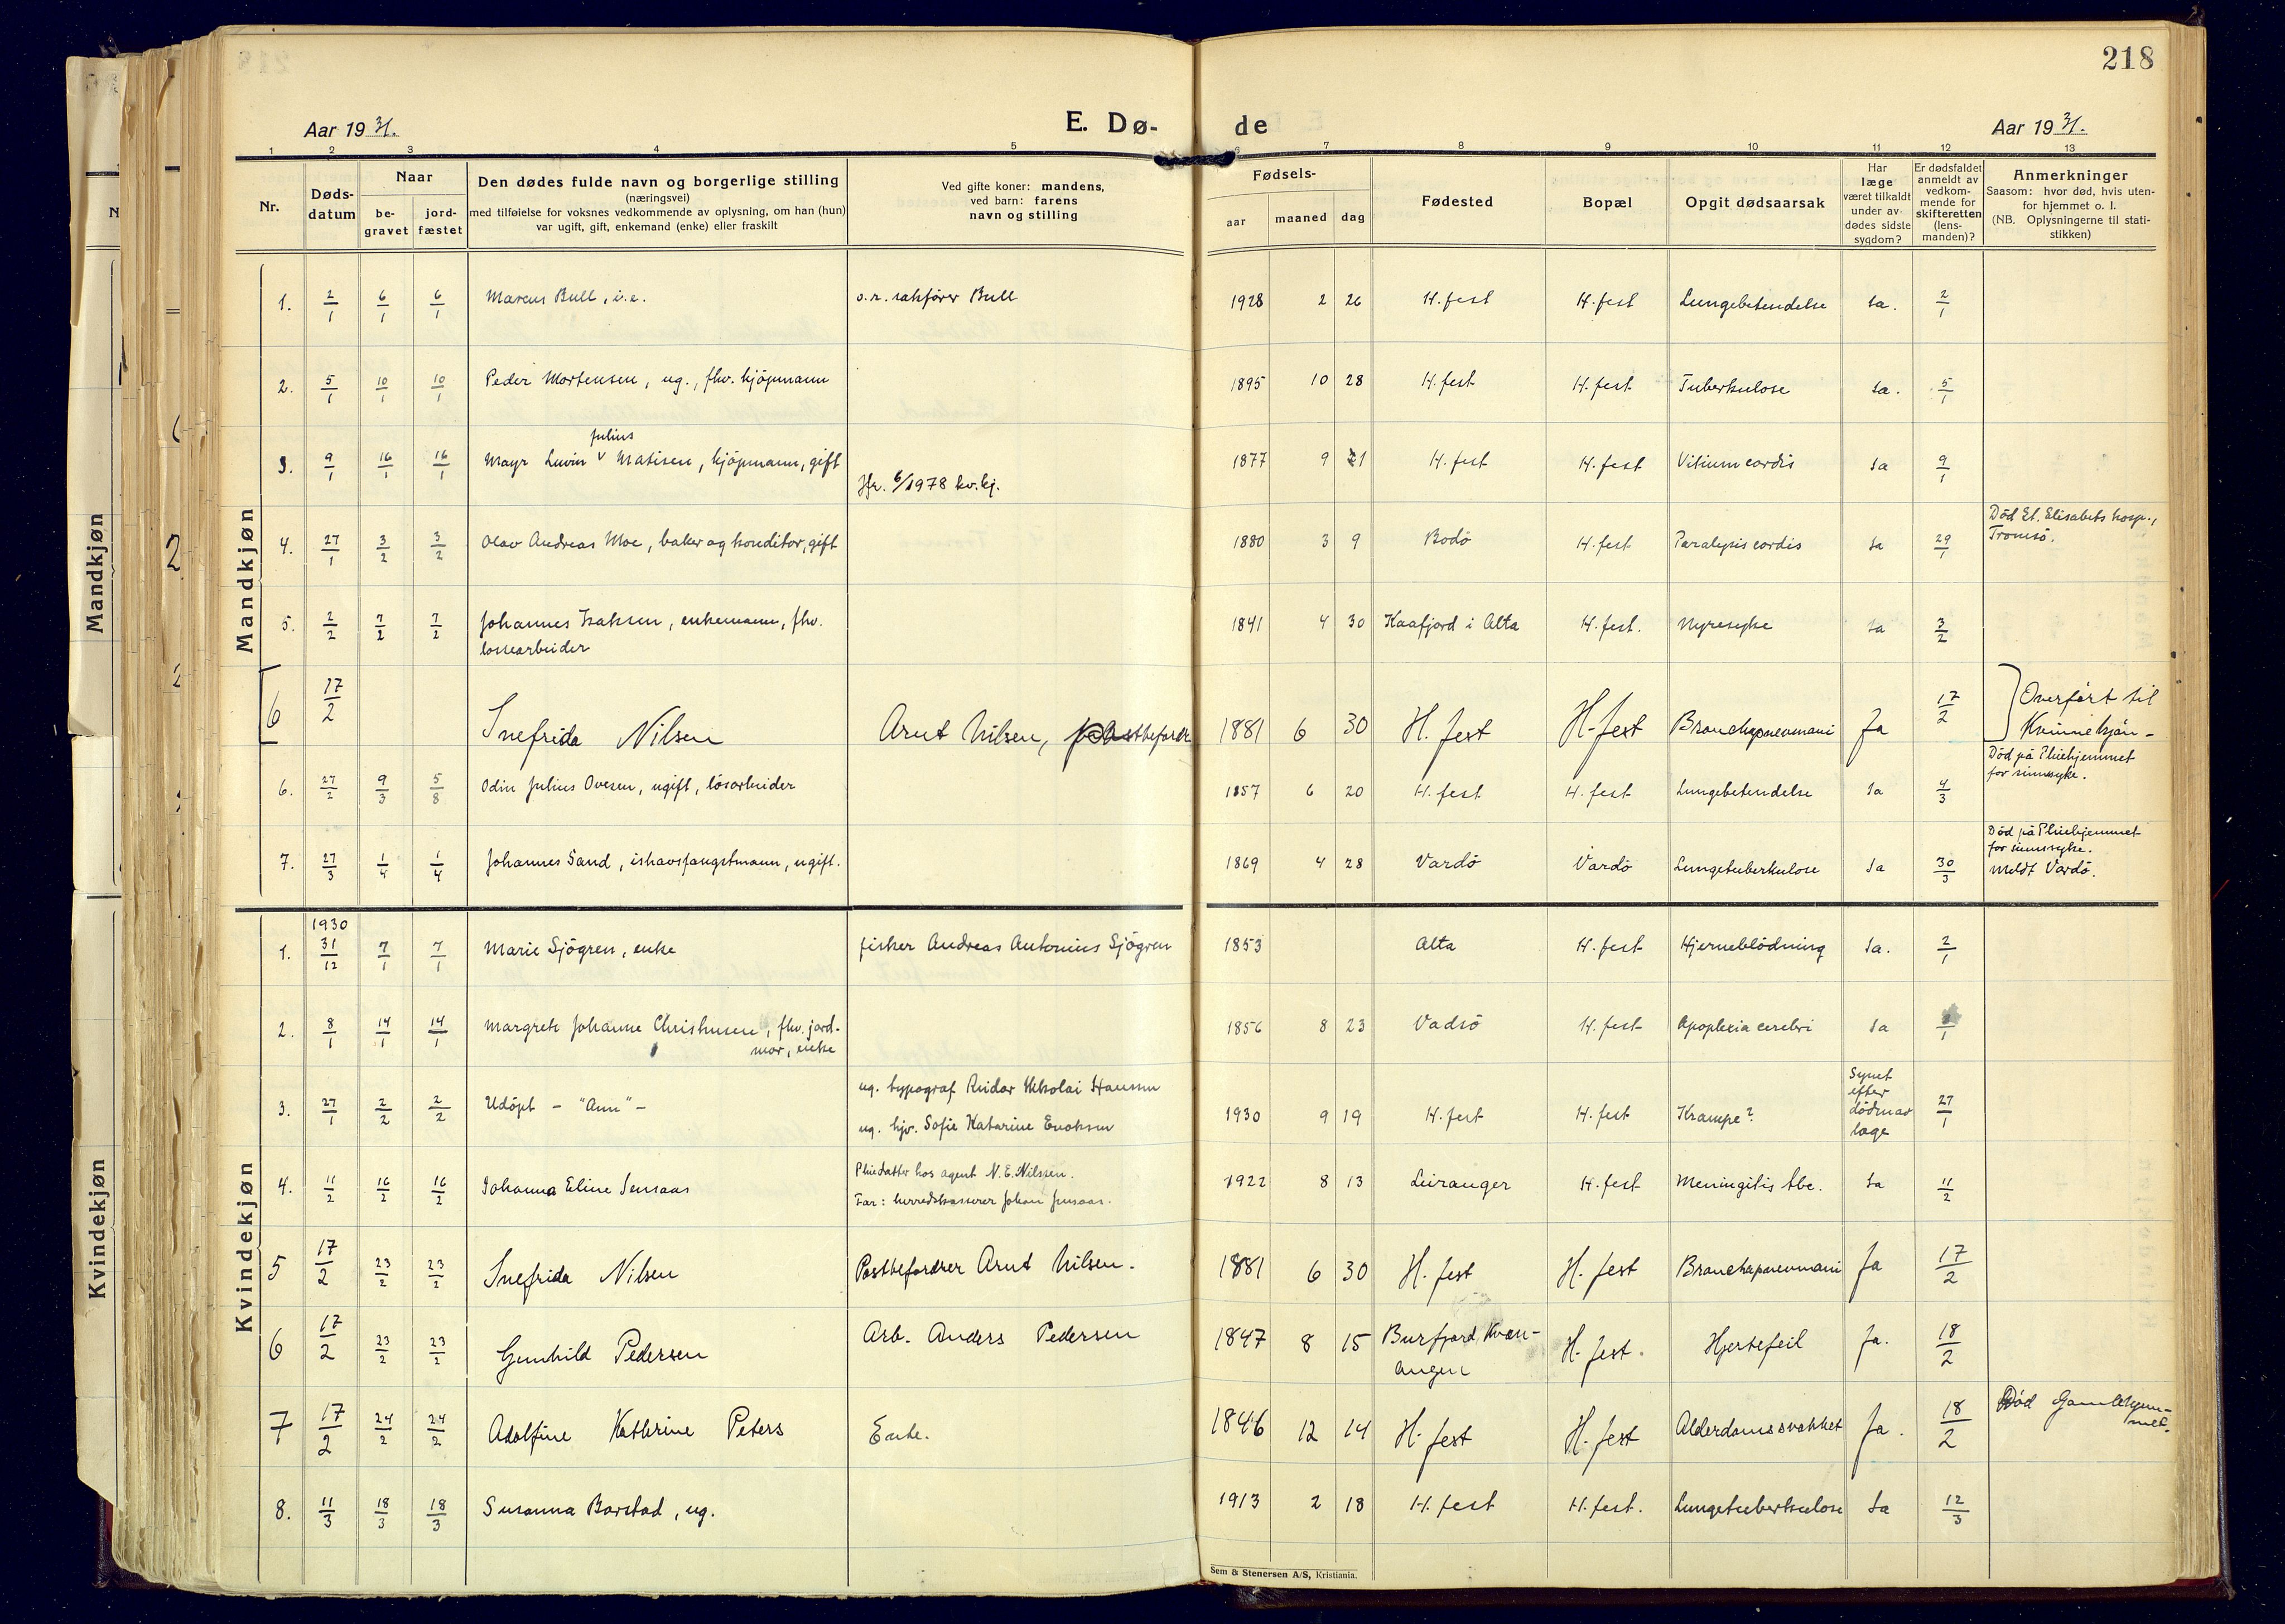 218
Aar 1931.
E. Dø-
de
Aar 1931.
1 2 3 4 5 6 7 8 9 10 11 12 13
Nr.
Døds-
datum
Naar
be-
gravet
jord-
fæstet
Den dødes fulde navn og borgerlige stilling
(næringsvei)
med tilføielse for voksnes vedkommende av oplysning, om han (hun)
var ugift, gift, enkemand (enke) eller fraskilt
Ved gifte koner: mandens,
ved barn: farens
navn og stilling
Fødsels-
aar maaned dag
Fødested
Bopæl
Opgit dødsaarsak
Har
læge
været tilkaldt
under av-
dødes sidste
sygdom?
Er dødsfaldet
anmeldt av
vedkom-
mende for
skifteretten
(lens-
manden)?
Anmerkninger
Saasom: hvor død, hvis uten-
for hjemmet o. l.
(NB. Oplysningerne til stati-
stikken)
Mandkjøn
Mandkjøn
1. 2/1 6/1 6/1 Marcus Bull, i.e. o.r. sakfører Bull 1928 2 26 H.fest H.fest Lungebetendelse Ja. 2/1
2. 5/1 10/1 10/1 Peder Mortensen, ug., fhv. kjöpmann 1895 10 28 H.fest H.fest Tuberkulose Ja. 5/1
Julius
3. 9/1 16/1 16/1 Mayr Levin v Matisen, kjöpmann, gift 1877 9 21 H.fest H.fest Vitium cordis Ja 9/1
Jfr. 6/1978 kv.kj.
4. 27/1 3/2 3/2 Olav Andreas Moe, baker og konditor, gift 1880 3 9 Bodö H.fest Paralysis cordis Ja 29/1 Död St. Elisabets hosp.,
Tromsö.
5. 2/2 7/2 7/2 Johannes Isaksen, enkemann, fhv. 1841 4 30 Kaafjord i Alta H.fest. Nyresyke Ja 3/2
lossearbeider
6 17/2 Snefrida Nilsen Arnt Nilsen, postbefordrer 1881 6 30 H. fest H-fest Bronchopneumoni Ja 17/2 Overfört til
Kvinnekjön-
6. 27/2 9/3 5/8 Odin Julius Ovesen, ugift, lösarbeider 1857 6 20 H.fest H.fest Lungebetendelse Ja 4/3 Död på Pleiehjemmet
for sinnsyke.
7. 27/3 1/4 1/4 Johannes Sand, ishavsfangstmann, ugift. 1869 4 28 Vardö Vardö Lungetuberkulose Ja 30/3 Död på Pleiehjemmet
for sinnssyke.
Meldt Vardö.
Kvindekjøn
Kvindekjøn
1930
1. 31/12 7/1 7/1 Marie Sjögren, enke fisker Andreas Antonius Sjögren 1853 Alta H.fest Hjerneblödning Ja. 2/1
2. 8/1 14/1 14/1 Margrete Johanne Christensen, fhv. jord- 1856 8 23 Vadsö H.fest Apoplexia cerebri Ja
mor, enke
3. 27/1 2/2 2/2 Udöpt - "Ann" - ug. typograf Reidar Nikolai Hansen
ug. hjv. Sofie Katarine Enoksen 1930 9 19 H.fest H.fest Krampe? Synet
efter
döden av
læge 27/1
4. 11/2 16/2 16/2 Johanna Eline Jensaas Pleiedatter hos agent N.E. Nilssen.
Far: herredskasserer Johan Jensaas. 1922 8 13 Leiranger H.fest Meningitis tbc. Ja 11/2
5 17/2 23/2 23/2 Snefrida Nilsen Postbefordrer Arnt Nilsen. 1881 6 30 H. fest H. fest Bronchopneumoni Ja 17/2
6 17/2 23/2 23/2 Gunhild Pedersen Arb. Anders Pedersen 1847 8 15 Burfjord, Kvæn-
angen H. fest. Hjertefeil Ja. 18/2
7 17/2 24/2 24/2 Adolfine Kathrine Peters Enke. 1846 12 14 H. fest H. fest Alderdomssvakhet Ja. 18/2 Död Gamlehjem-
met.
8. 11/3 18/3 18/3 Susanna Barstad, ug. 1913 2 18 H.fest H.fest. Lungetuberkulose Ja 12/3
Sem & Stenersen A/S, Kristiania.